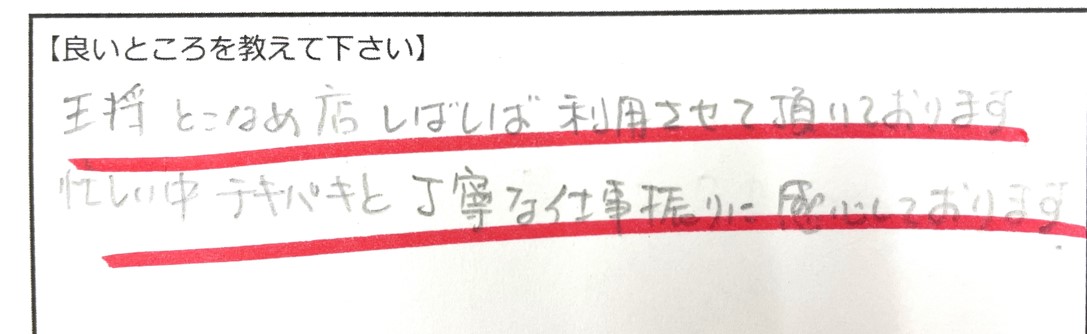 【良いところを教えて下さい】
王将 とこなめ店 しばしば 利用させて頂いております
忙しい中 テキパキと 丁寧な仕事振りに 感心しております